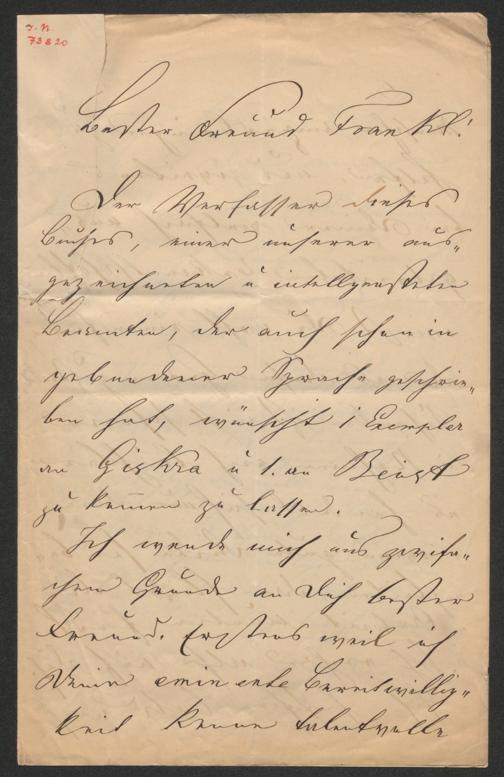 I. N.
73820
Bester Freund Frankl!
Der Verfasser dieses
Buches, einer unserer aus-
gezeichneten u intelligentesten
Beamten, der auch schon in
gebundener Sprache geschrie-
ben hat, wünscht 1 Exemplar
an Giskra u 1. an Beust
zu kommen zu lassen.
Ich wende mich aus zweifa-
chem Grunde an Dich bester
Freund. Erstens weil ich
Deine eminente Bereitwillig-
keit kenne talentvolle